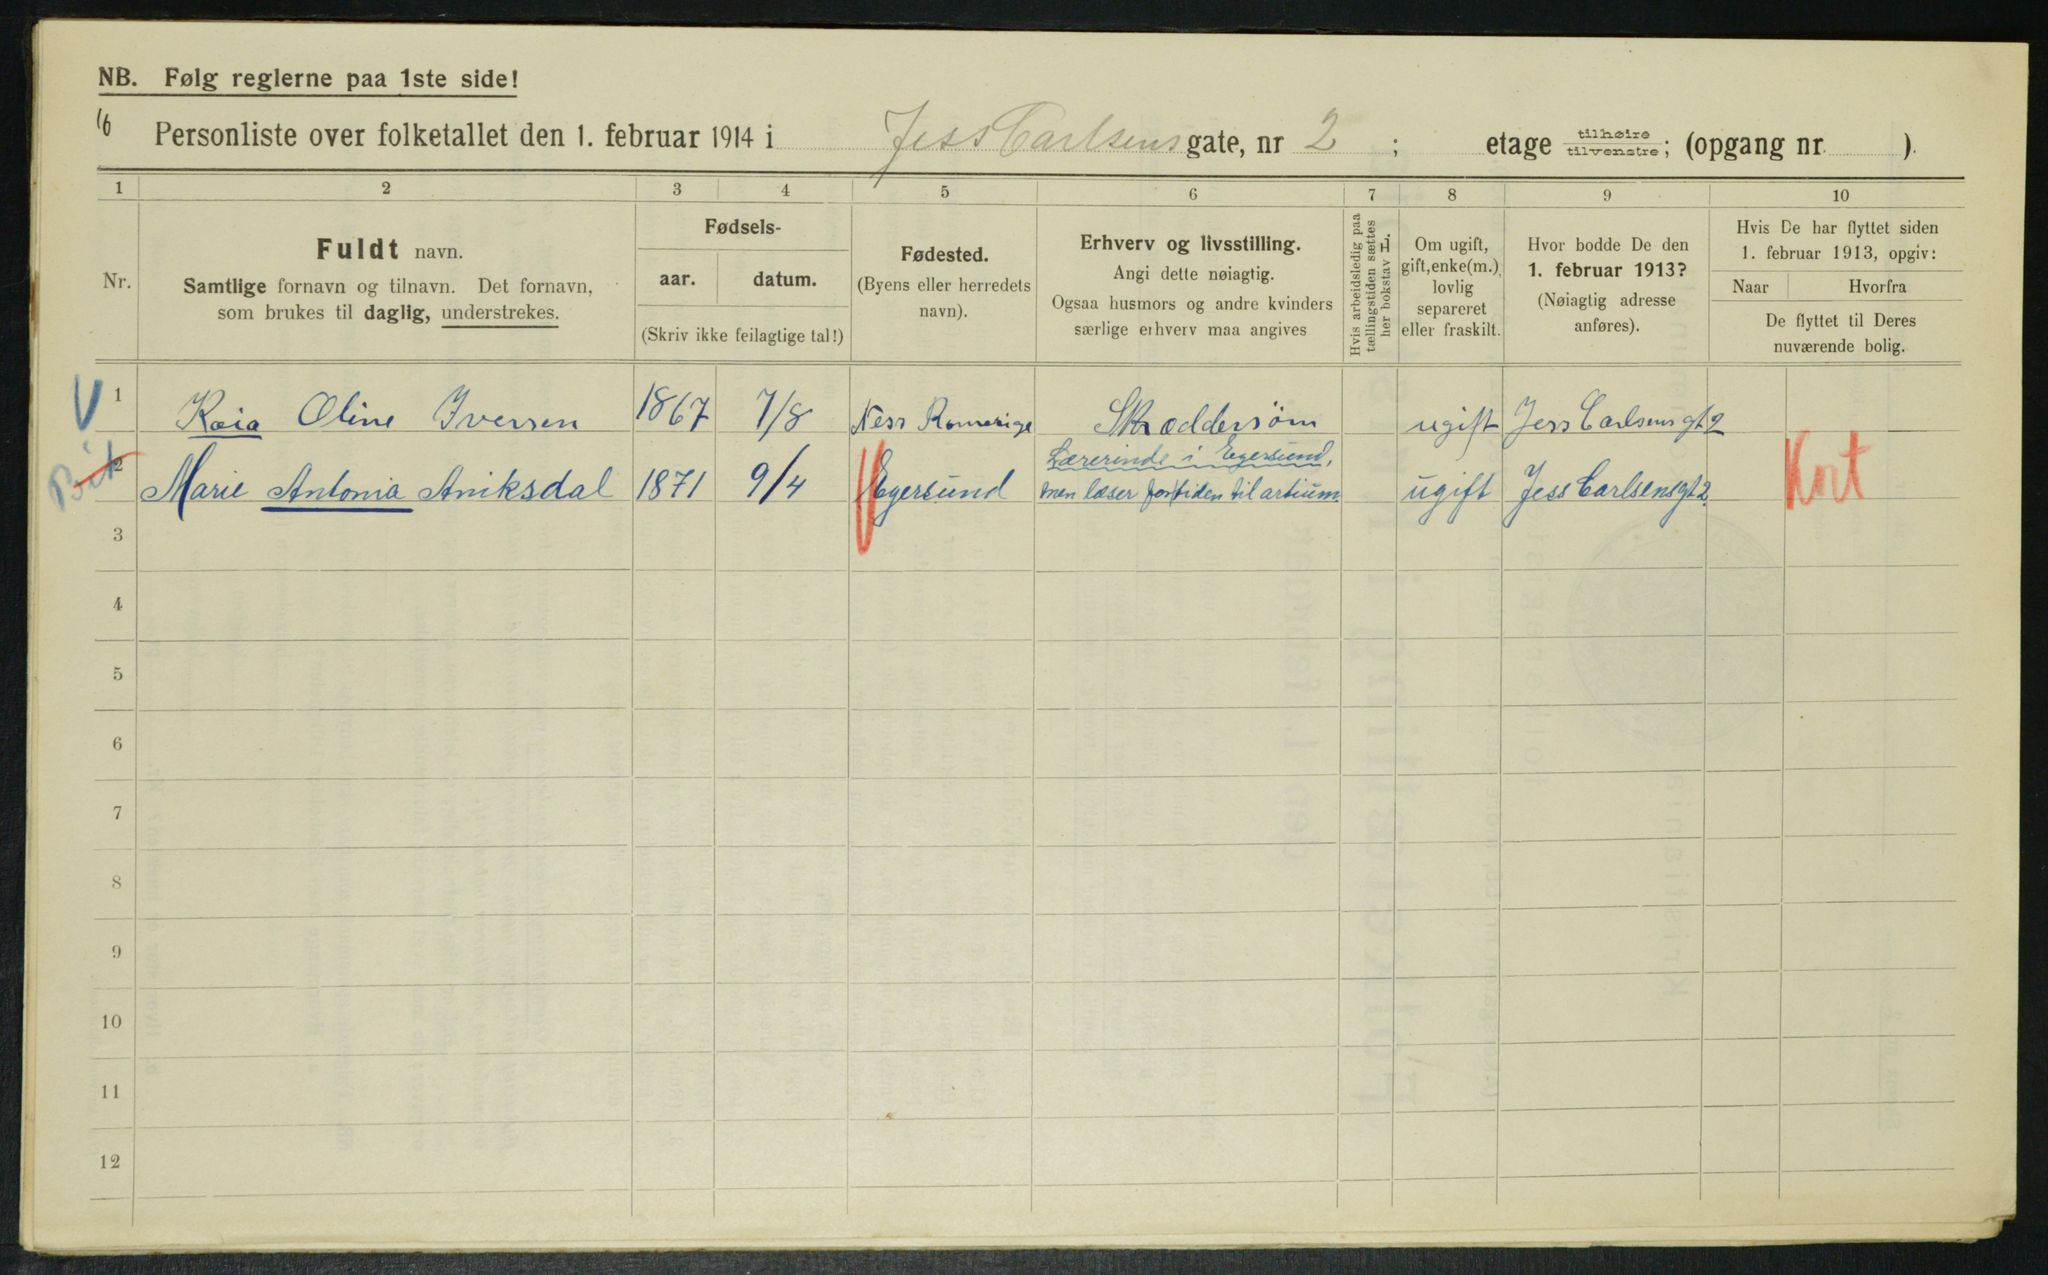 NB. Følg reglerne paa 1ste side!
16 Personliste over folketallet den 1. februar 1914 i Jess Carlsens gate, nr 2 ; etage tilhøire tilvenstre; (opgang nr ).
1 2 3 4 5 6 7 8 9 10
Nr.
Fuldt navn.
Samtlige fornavn og tilnavn. Det fornavn,
som brukes til daglig, understrekes.
Fødsels-
aar. datum.
(Skriv ikke feilagtige tal!)
Fødested.
(Byens eller herredets
navn).
Erhverv og livsstilling.
Angi dette nøiagtig.
Ogsaa husmors og andre kvinders
særlige erhverv maa angives
Hvis arbeidsledig paa
tællingstiden sættes
her bokstav L.
Om ugift,
gift, enke(m.),
lovlig
separeret
eller fraskilt.
Hvor bodde De den
1. februar 1913?
(Nøiagtig adresse
anføres).
Hvis De har flyttet siden
1. februar 1913, opgiv:
Naar Hvorfra
De flyttet til Deres
nuværende bolig.
1 Kaia Oline Iversen 1867 7/8 Ness Romerige Skræddersøm ugift Jess Carlsens gt 2
Lærerinde i Egersund,
2 Marie Antonia Aniksdal 1871 9/4 Egersund men læser for tiden til artium. ugift Jess Carlsens gt 2. Kort
3
4
5
6
7
8
9
10
11
12